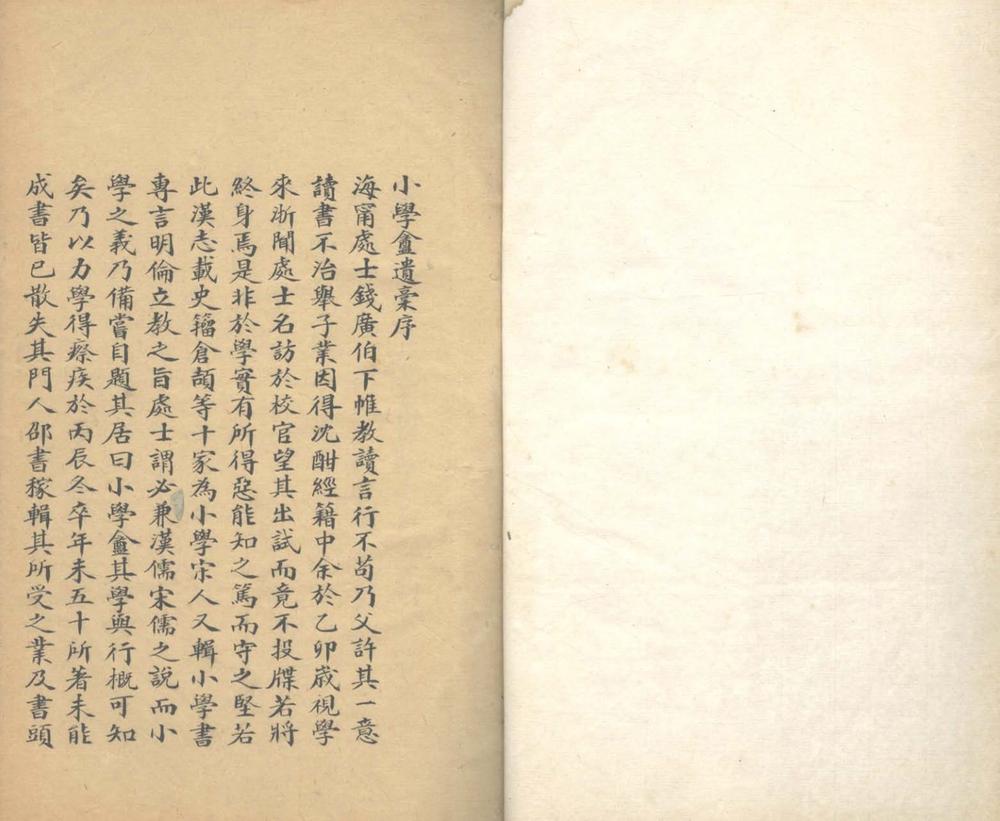 小學盦遺稾序
海甯處士錢廣伯下帷教讀言行不苟乃父許其一意
讀書不冶舉子業因得沈酣經籍中余於乙卯歲視學
來浙聞處士名訪於校官望其出試而竟不投牒若將
終身焉是非於學實有所得惡能知之篤而守之堅若
此漢志載史籀倉頡等十家為小學宋人又輯小學書
專言明倫立教之旨處士謂必兼漢儒宋儒之說而小
學之義乃備嘗自題其居曰小學盦其學與行概可知
矣乃以力學得瘵疾於丙辰冬卒年未五十所著未能
成書皆已散失其門人邵書稼輯其所受之業及書頭